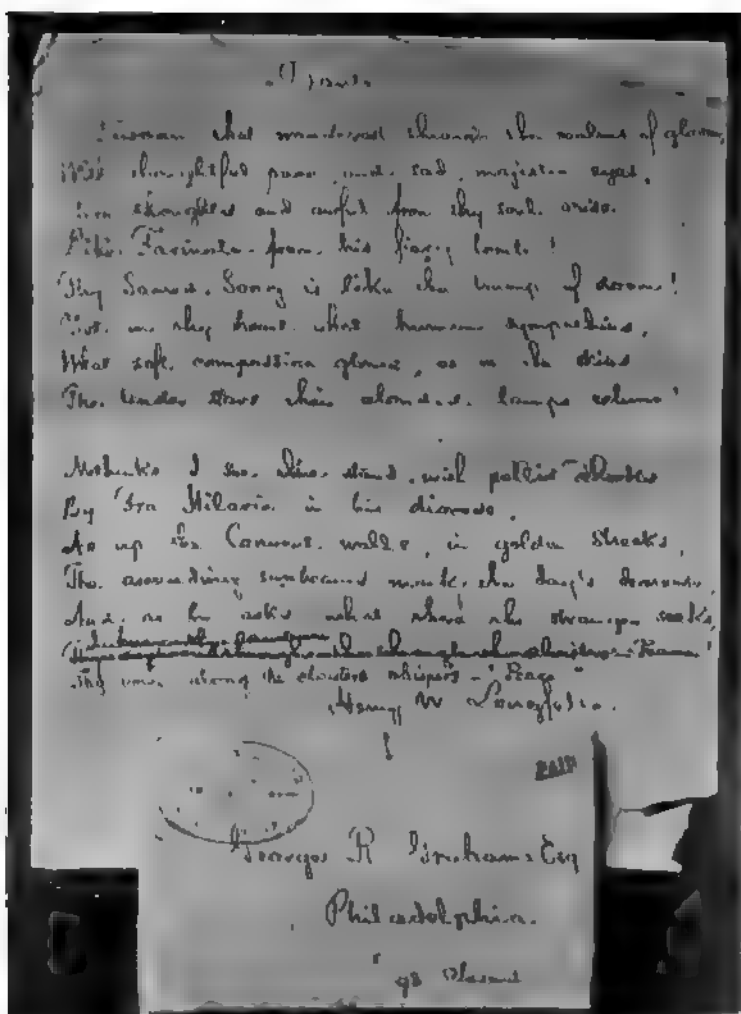 Dante.
Tuscan that wanderest through the realms of gloom,
With thoughtful pace, and sad, majestic eyes,
Stern thoughts and awful from thy soul arise
Like Farinata from his fiery tomb!
Thy Sacred Song is like the trump of doom!
Yet in thy heart what human sympathies,
What soft compassion glows, as in the skies
The tender stars their clouded lamps relume!
Methinks I see thee stand, with pallid cheeks
By Fra Hilario in his diocese,
As up the Convent walls, in golden Streaks,
The ascending sunbeams mark the day's decrease,
And, as he asks what there the stranger seeks,
Thy voice along the cloisters whispers - "Peace"
Henry W Longfellow.
PAID
George R Graham Esq
Philadelphia.